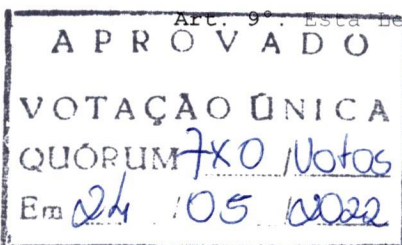 Art. 9º. Esta
APROVADO
VOTAÇÃO ÚNICA
QUÓRUM 7X0 /Votos
Em 24 / 05 / 2022